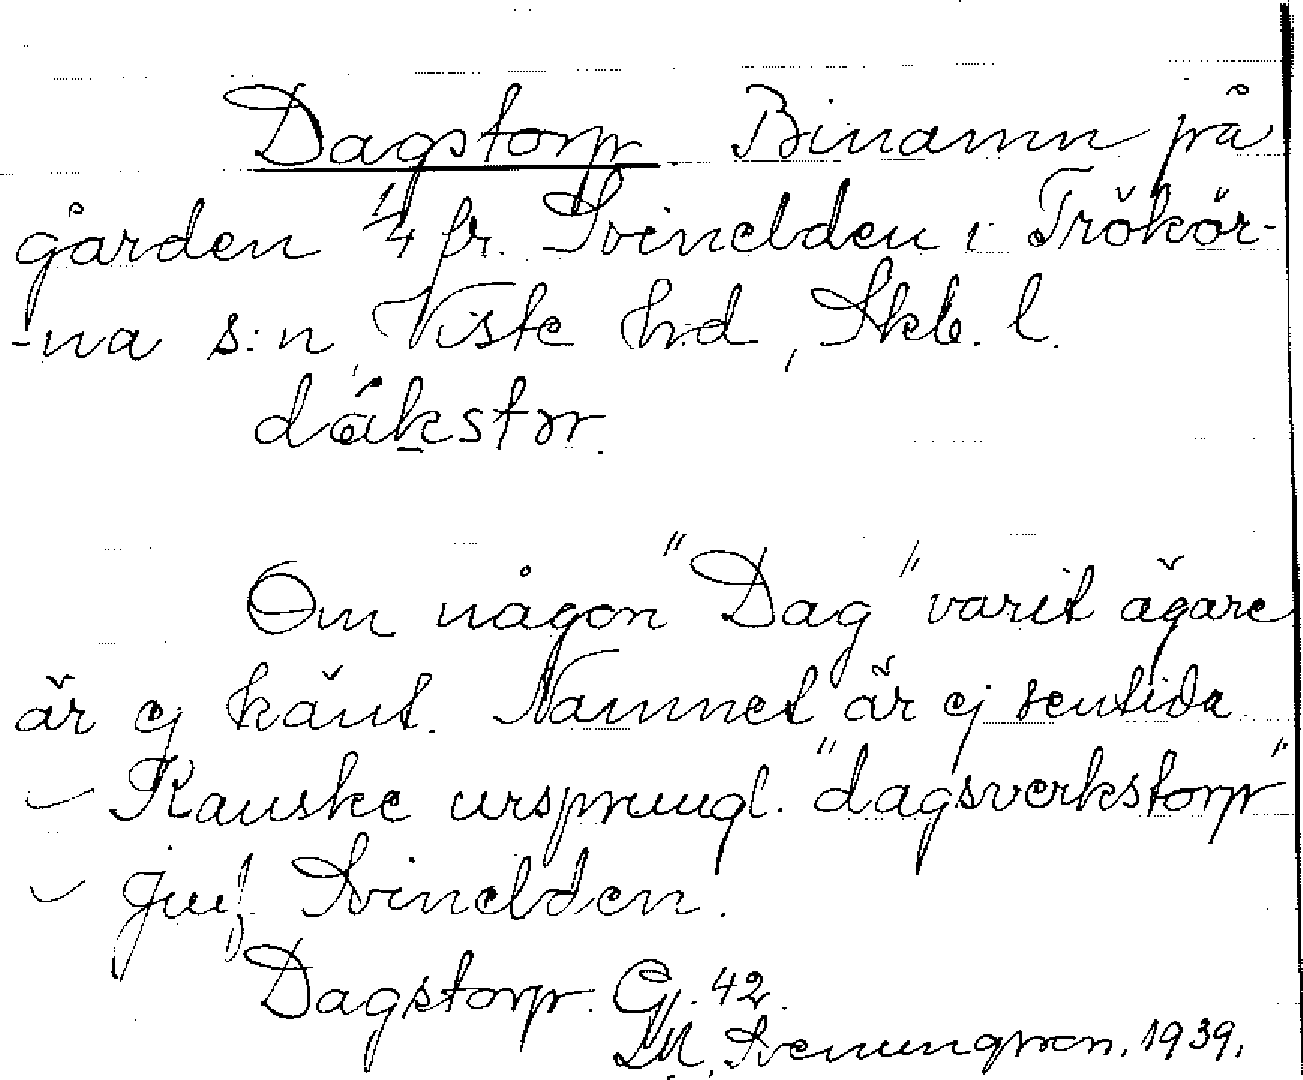 Dagstorp Binamn på
gården 1/4 fr. Svinelden i Trökör-
-na s:n, Viste hrd, Skb. l.
dákstor.
Om någon "Dag" varit ägare
är ej känt. Namnet är ej sentida
- Kanske urspungl. "dagsverkstorp"
- Jmf Svinelden.
Dagstorp. Gj. 42.
M. Svenungsson. 1939.